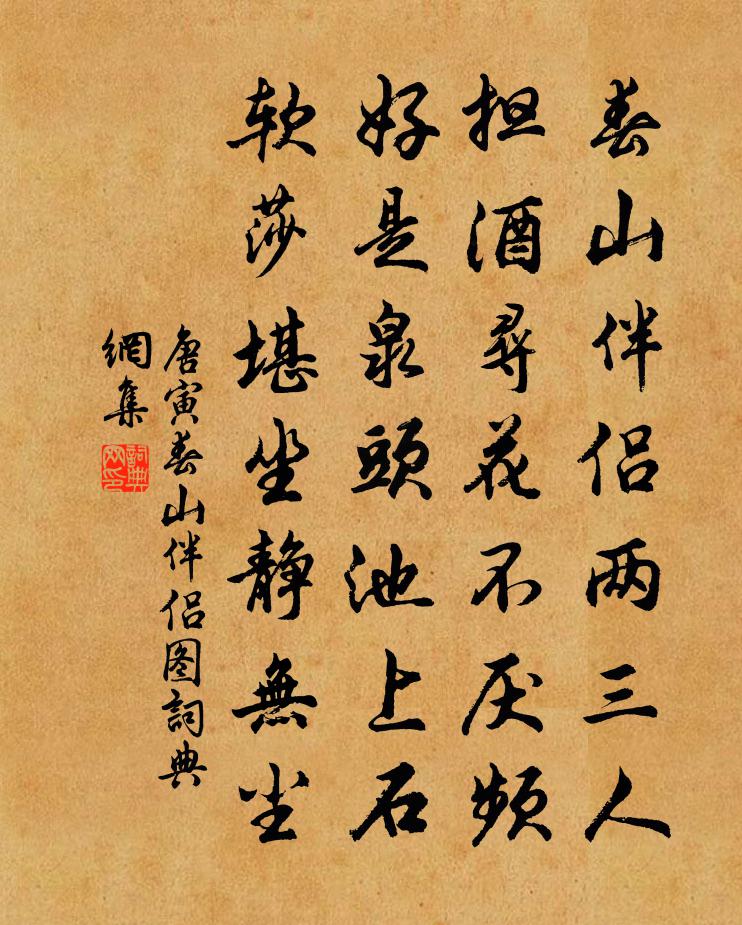 春山伴侣两三人
担酒尋花不厌頻
好是泉頭池上石
软莎堪坐静無尘
唐寅春山伴侣图詞典
網集
詞典
网印